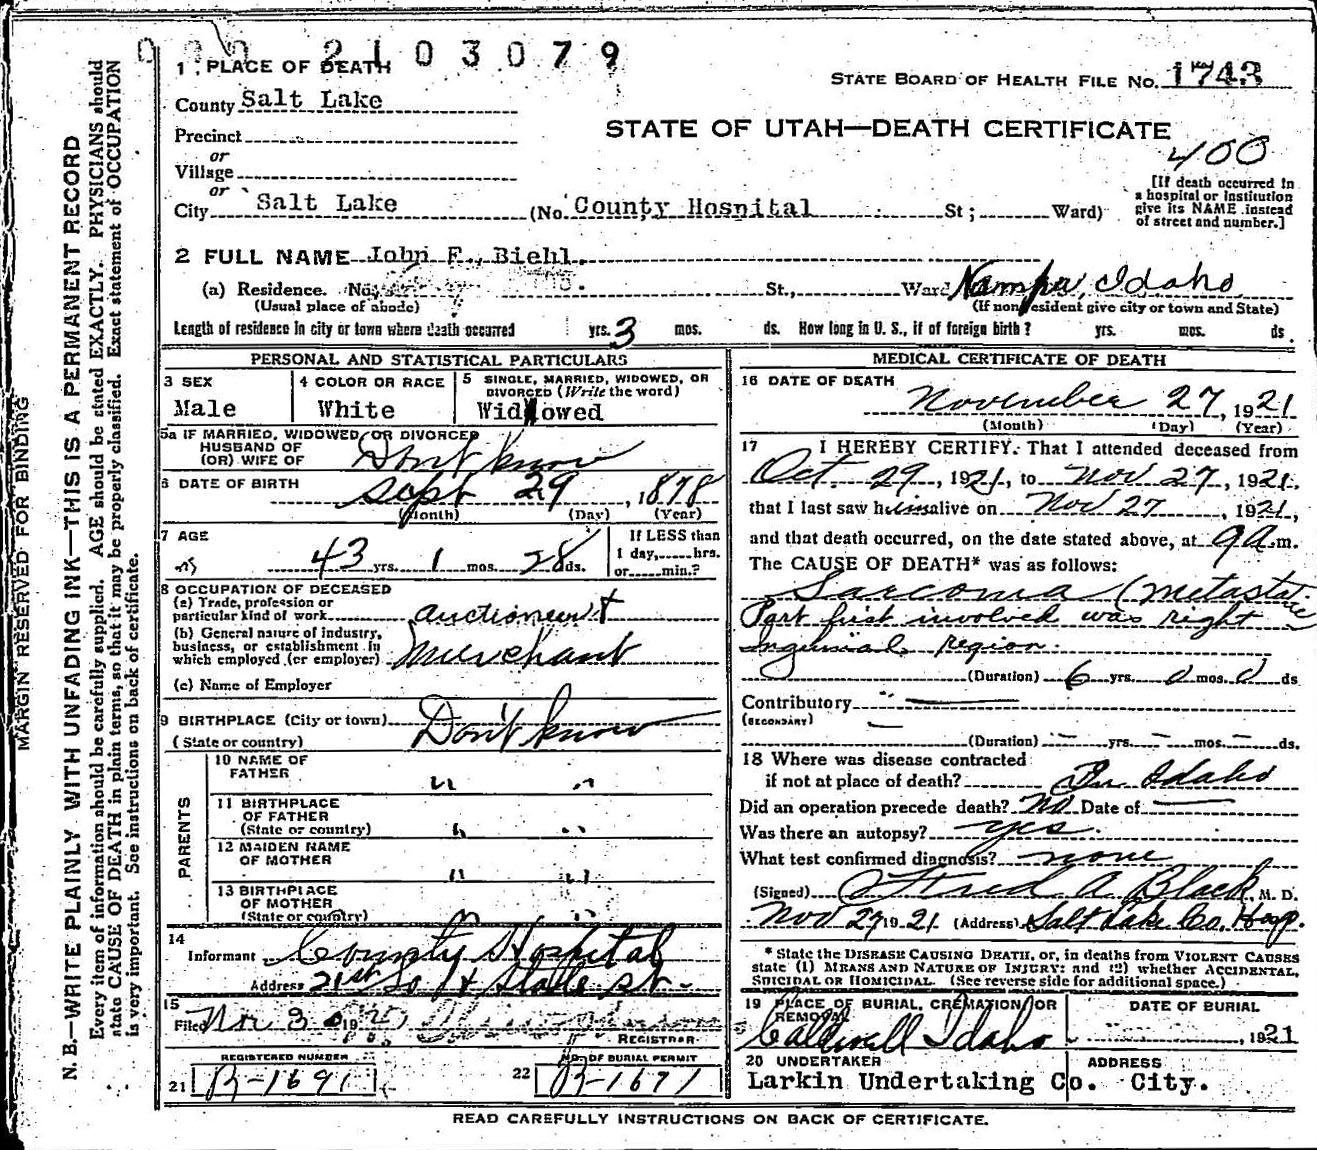 2103079
1 PLACE OF DEATH
STATE BOARD OF HEALTH FILE No. 1743
County Salt Lake
STATE OF UTAH—DEATH CERTIFICATE
Precinct
400
or
Village
or
City Salt Lake (No County Hospital St; Ward)
[If death occurred in a hospital or institution give its NAME instead of street and number.]
2 FULL NAME John F. Biehl.
(a) Residence. No. St., Ward Nampa, Idaho
(Usual place of abode) (If nonresident give city or town and State)
Length of residence in city or town where death occurred yrs. 3 mos. ds. How long in U. S., if of foreign birth? yrs. mos. ds.
PERSONAL AND STATISTICAL PARTICULARS
3 SEX
Male
4 COLOR OR RACE
White
5 SINGLE, MARRIED, WIDOWED, OR
DIVORCED (Write the word)
Widowed
5a IF MARRIED, WIDOWED, OR DIVORCED
HUSBAND OF
(OR) WIFE OF Don't know
6 DATE OF BIRTH Sept 29, 1878
(Month) (Day) (Year)
7 AGE
43 yrs. 1 mos. 28 ds.
If LESS than
1 day, hrs.
or min.?
8 OCCUPATION OF DECEASED
(a) Trade, profession or
particular kind of work auctioneer &
(b) General nature of industry,
business, or establishment in
which employed (or employer) Merchant
(c) Name of Employer
9 BIRTHPLACE (City or town) Don't know
(State or country)
PARENTS
10 NAME OF
FATHER " "
11 BIRTHPLACE
OF FATHER
(State or country) " "
12 MAIDEN NAME
OF MOTHER " "
13 BIRTHPLACE
OF MOTHER
(State or country) " "
14
Informant County Hospital
Address 21st So & State St.
15
Filed Nov 30 19
REGISTRAR
REGISTERED NUMBER
21 B-1691
NO. OF BURIAL PERMIT
22 B-1671
MEDICAL CERTIFICATE OF DEATH
16 DATE OF DEATH
November 27, 1921
(Month) (Day) (Year)
17 I HEREBY CERTIFY. That I attended deceased from
Oct. 29, 1921, to Nov 27, 1921.
that I last saw him alive on Nov 27, 1921,
and that death occurred, on the date stated above, at 9 a.m.
The CAUSE OF DEATH* was as follows:
Sarcoma (Metastatic
Part first involved was right
Inguinal region.
(Duration) 6 yrs. 0 mos. 0 ds
Contributory
(SECONDARY)
(Duration) yrs. mos. ds.
18 Where was disease contracted
if not at place of death? In Idaho
Did an operation precede death? No Date of
Was there an autopsy? yes.
What test confirmed diagnosis? none
(Signed) Fred A Black, M. D.
Nov 27 1921. (Address) Salt Lake Co. Hosp.
* State the DISEASE CAUSING DEATH, or, in deaths from VIOLENT CAUSES
state (1) MEANS AND NATURE OF INJURY; and (2) whether ACCIDENTAL,
SUICIDAL OR HOMICIDAL. (See reverse side for additional space.)
19 PLACE OF BURIAL, CREMATION, OR
REMOVAL
Caldwell Idaho
DATE OF BURIAL
, 1921
20 UNDERTAKER
Larkin Undertaking Co.
ADDRESS
City.
READ CAREFULLY INSTRUCTIONS ON BACK OF CERTIFICATE.
MARGIN RESERVED FOR BINDING
N. B.—WRITE PLAINLY WITH UNFADING INK—THIS IS A PERMANENT RECORD
Every item of information should be carefully supplied. AGE should be stated EXACTLY. PHYSICIANS should
state CAUSE OF DEATH in plain terms, so that it may be properly classified. Exact statement of OCCUPATION
is very important. See instructions on back of certificate.